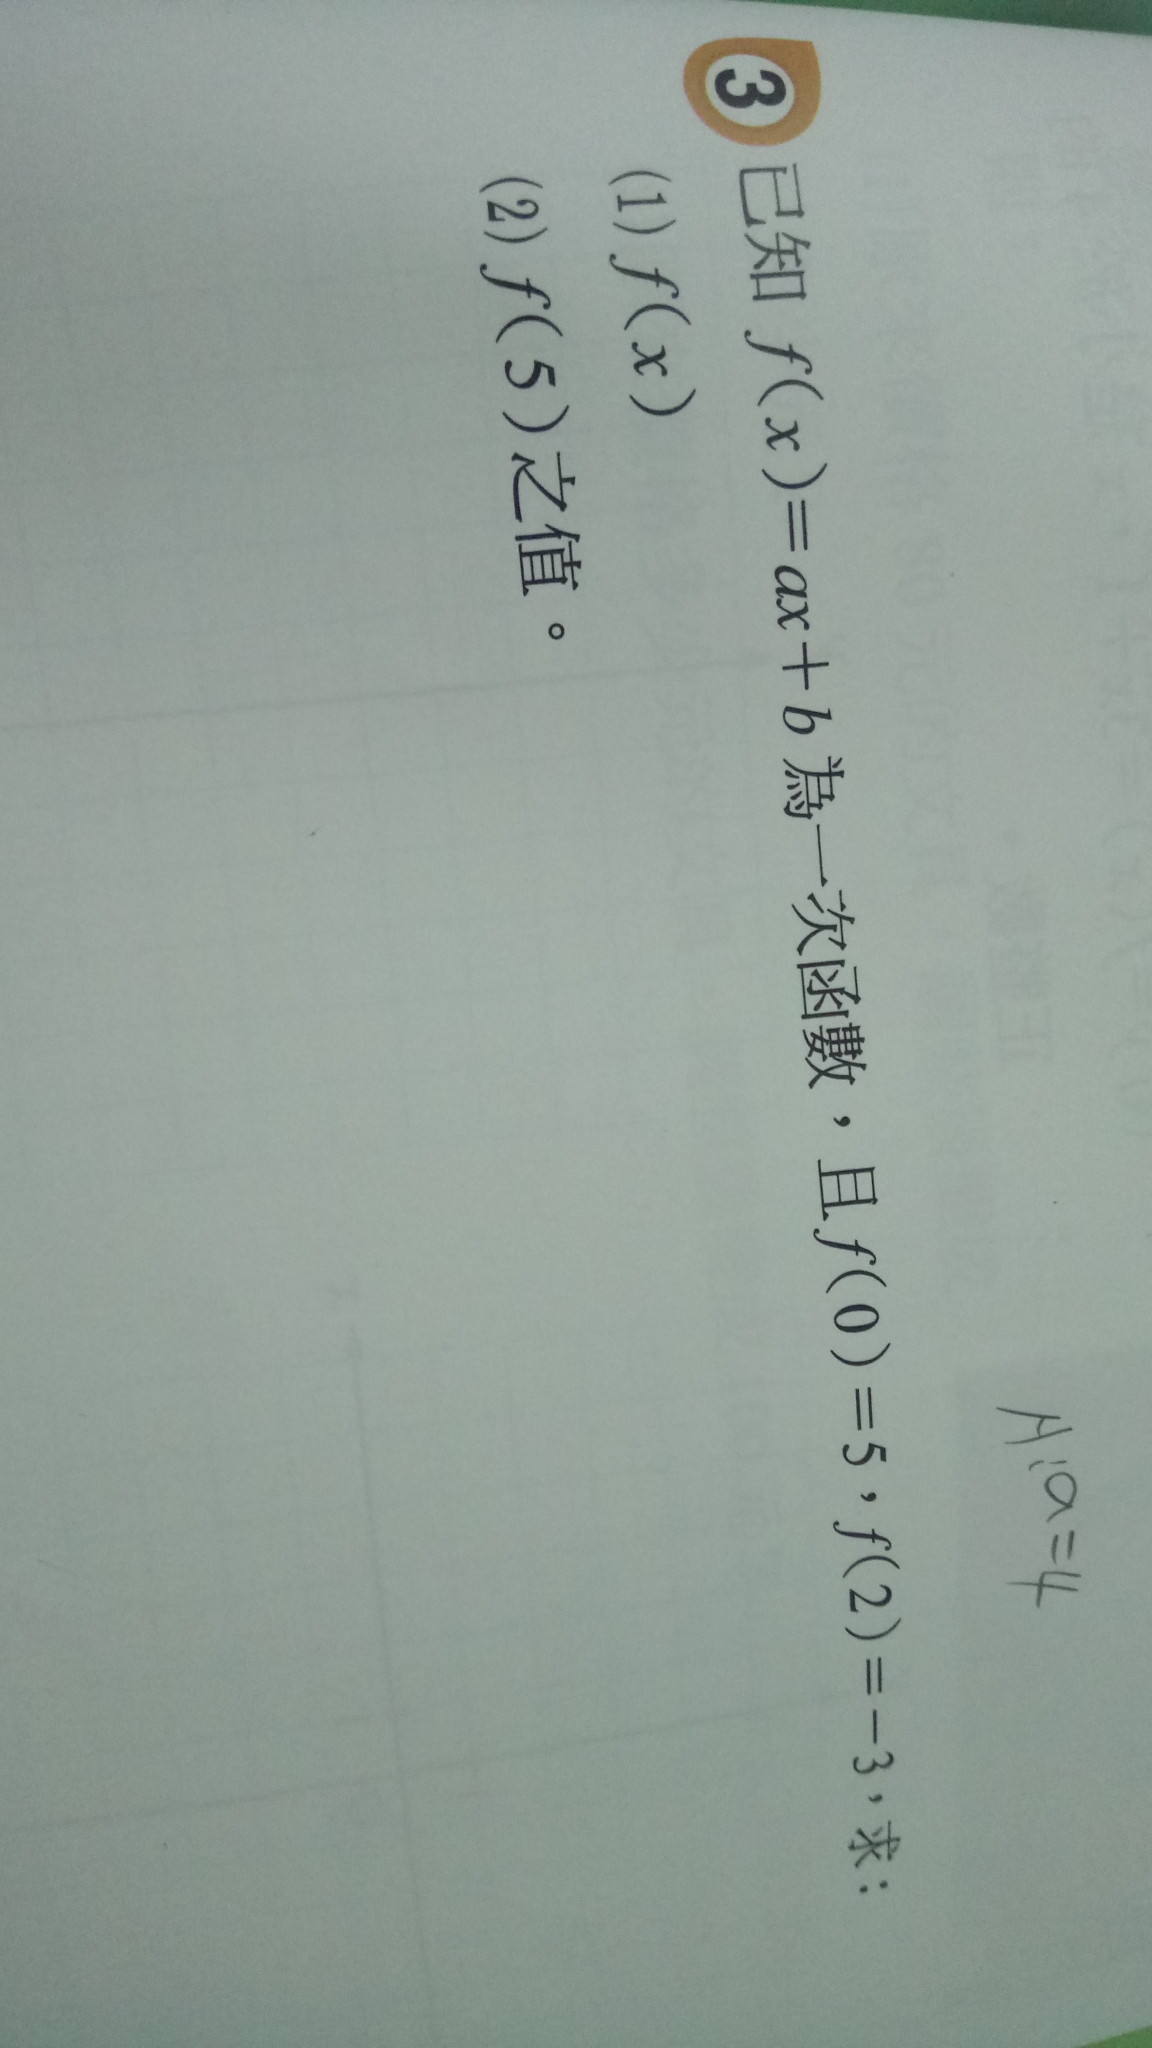 A:a=4
3 已知 f(x)=ax+b 為一次函數，且f(0)=5，f(2)=-3，求：
(1) f(x)
(2) f(5)之值。